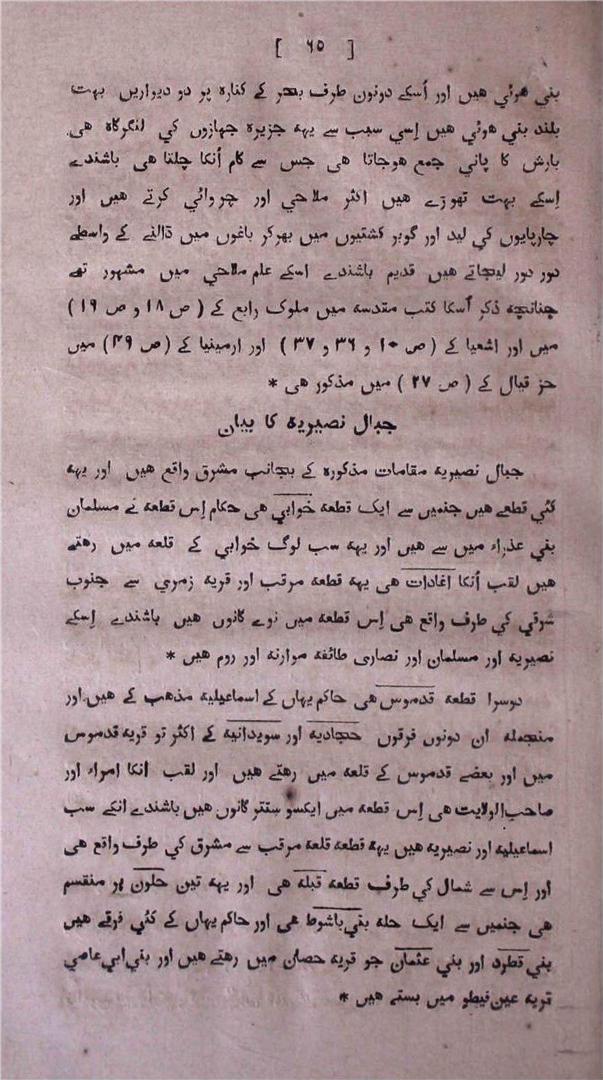 [ ۶۵ ]
بني هوئي هيں اور اُسکے دونوں طرف بحر کے کنارہ پر دو ديواريں بہت
بلند بني هوئي هيں اِسي سبب سے يهہ جزيرہ جهازوں کي لنگرگاہ هی
بارش کا پاني جمع هوجاتا هی جس سے کام اُنکا چلتا هی باشندے
اِسکے بہت تهوڑے هيں اکثر ملاحي اور چرواٸي کرتے هيں اور
چارپايوں کي ليد اور گوبر کشتيوں ميں بهرکر باغوں ميں ڈالنے کے واسطے
دور دور ليجاتے هيں قديم باشندے اسکے علم ملاحي ميں مشہور تهے
چنانچہ ذکر اُسکا کتب مقدسہ ميں ملوک رابع کے ( ص ۱۸ و ص ۱۹ )
ميں اور اشعيا کے ( ص ۱۰ و ۳۶ و ۳۷ ) اور ارمينيا کے ( ص ۴۹ ) ميں
حز قيال کے ( ص ۲۷ ) ميں مذکور هی *
جبال نصيريہ کا بيان
جبال نصيريہ مقامات مذکورہ کے بجانب مشرق واقع هيں اور يهہ
کئي قطعے هيں جنميں سے ايک قطعہ خوابي هی حکام اِس قطعہ نے مسلمان
بني عذراء ميں سے هيں اور يهہ سب لوگ خوابي کے قلعہ ميں رهتے
هيں لقب اُنکا اغادات هی يهہ قطعہ مرقب اور قريہ زمري سے جنوب
شرقي کي طرف واقع هی اِس قطعہ ميں نوے گانوں هيں باشندے اِسکے
نصيريہ اور مسلمان اور نصاری طائفہ موارنہ اور روم هيں *
دوسرا قطعہ قدموس هی حاکم يہاں کے اسماعيليہ مذهب کے هيں اور
منجملہ ان دونوں فرقوں حجاديہ اور سويدانيہ کے اکثر تو قريہ قدموس
ميں اور بعضے قدموس کے قلعہ ميں رهتے هيں اور لقب انکا امراء اور
صاحب الولايت هی اِس قطعہ ميں ايکسو ستتر گانوں هيں باشندے انکے سب
اسماعيليہ اور نصيريہ هيں يهہ قطعہ قلعہ مرقب سے مشرق کي طرف واقع هی
اور اِس سے شمال کي طرف قطعہ قبلہ هی اور يهہ تين حلوں پر منقسم
هی جنميں سے ايک حلہ بني باشوط هی اور حاکم يہاں کے کئي فرقے هيں
بني قطرد اور بني عثمان جو قريہ حصان ميں رهتے هيں اور بني ابي عاصي
قريہ عين فيطو ميں بستے هيں *